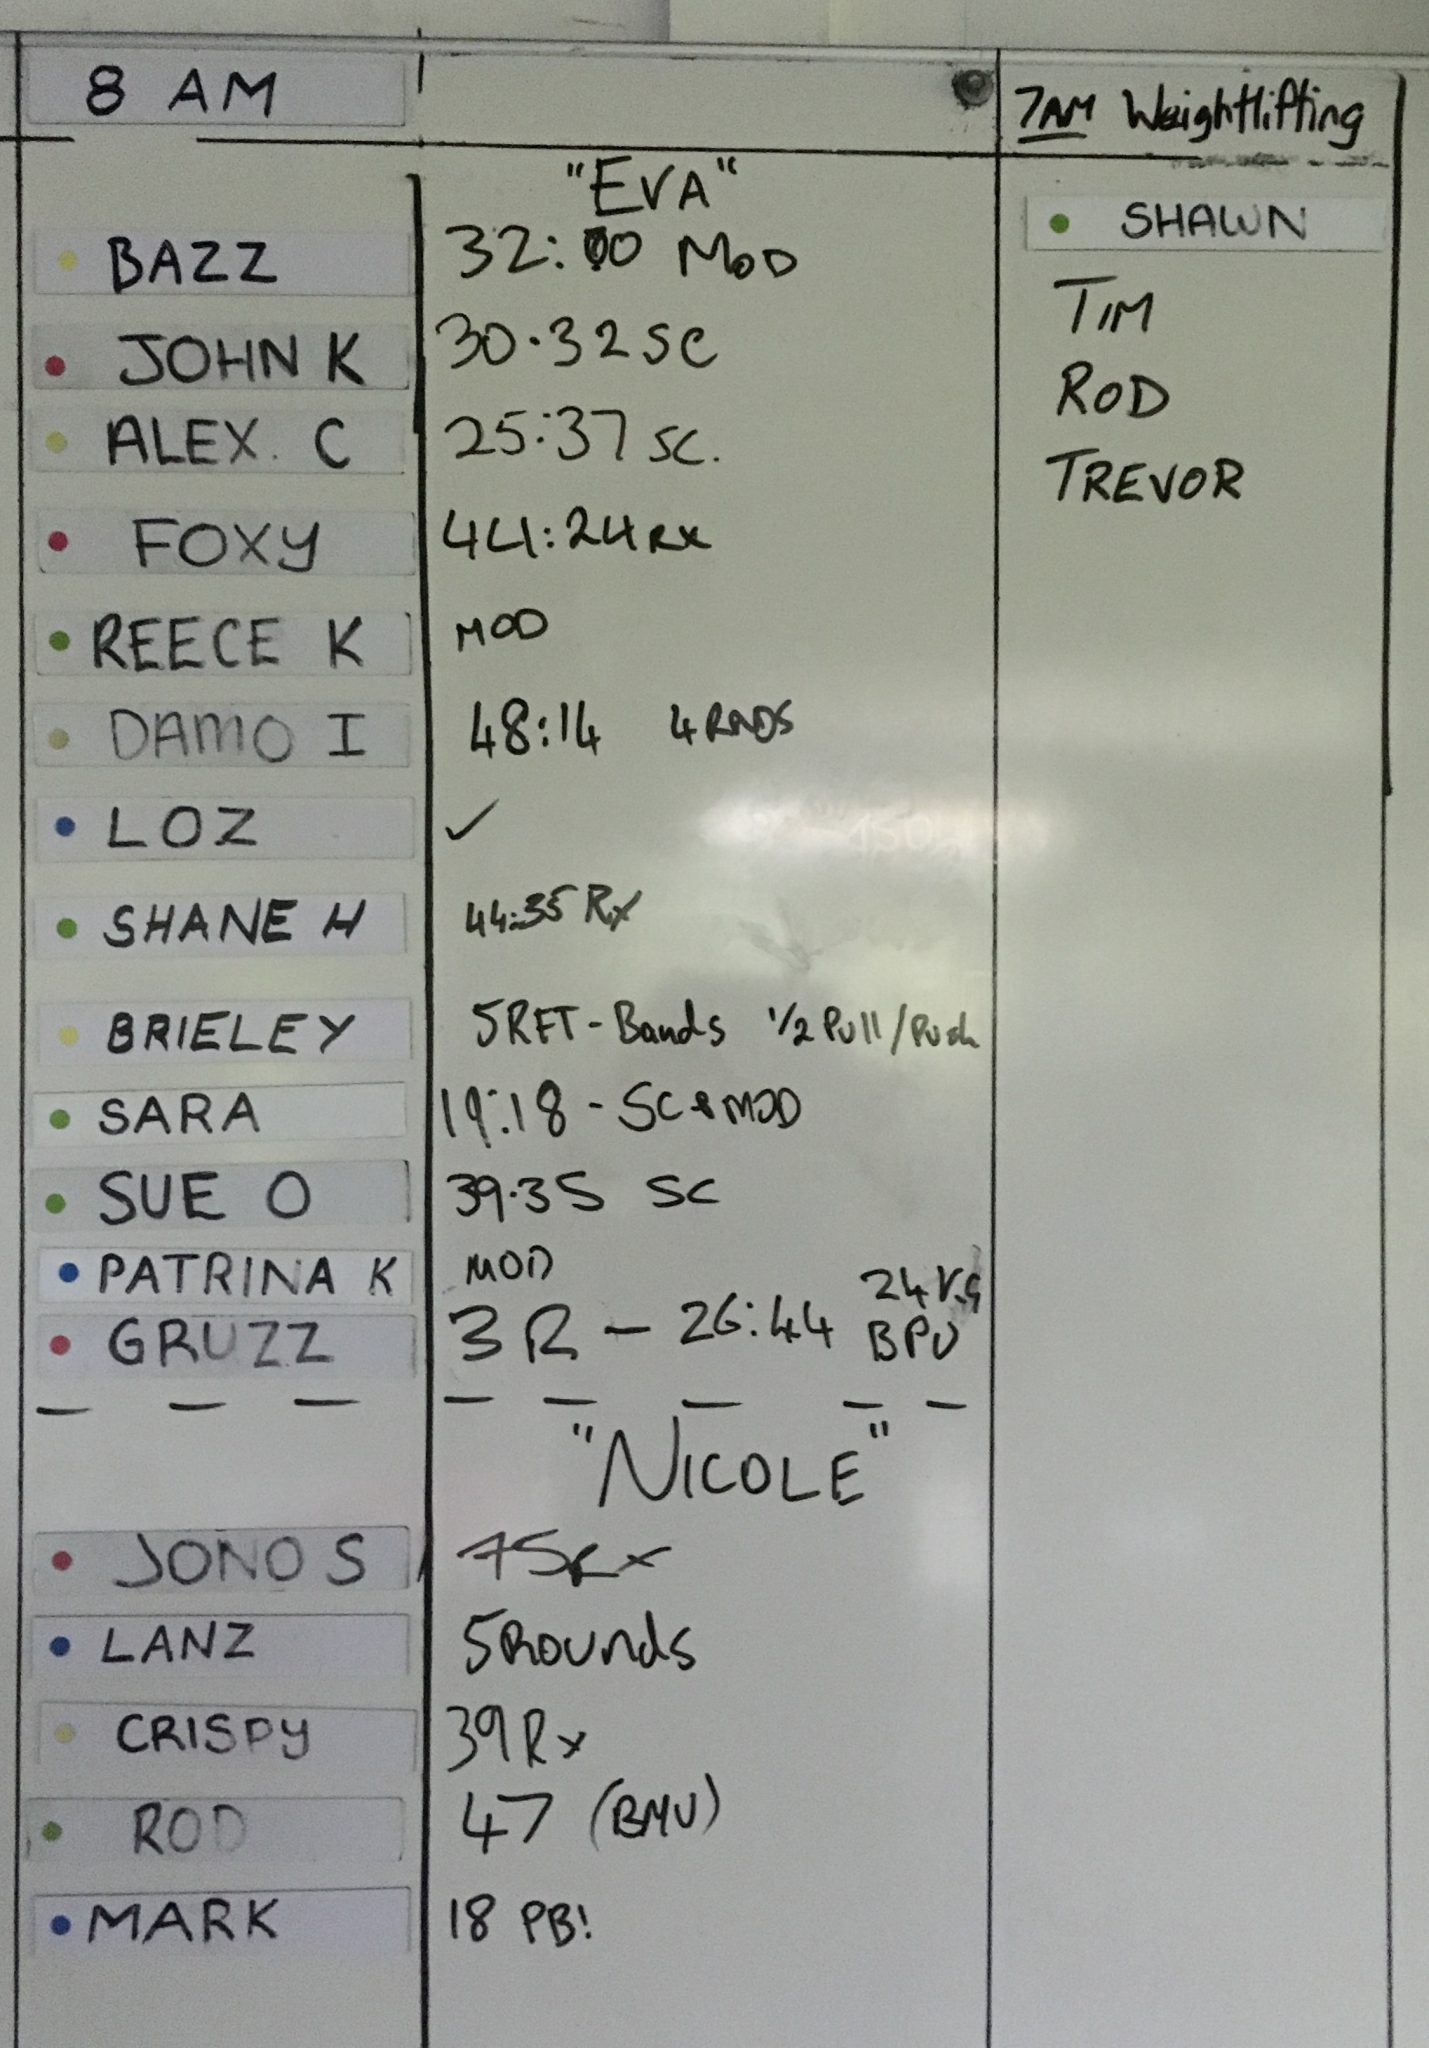 8 AM
7AM Weightlifting
"EVA"
BAZZ 32:00 MOD
JOHN K 30.32 SC
ALEX. C 25:37 SC.
FOXY 44:24 RX
REECE K MOD
DAMO I 48:14 4 RNDS
LOZ ✓
SHANE H 44:35 Rx
BRIELEY 5RFT - Bands 1/2 Pull/Push
SARA 19:18 - SC & MOD
SUE O 39.35 SC
PATRINA K MOD
GRUZZ 3 R - 26:44 24KG BPU
"NICOLE"
JONO S 75 RX
LANZ 5 Rounds
CRISPY 39 Rx
ROD 47 (BMU)
MARK 18 PB!
SHAWN
TIM
ROD
TREVOR